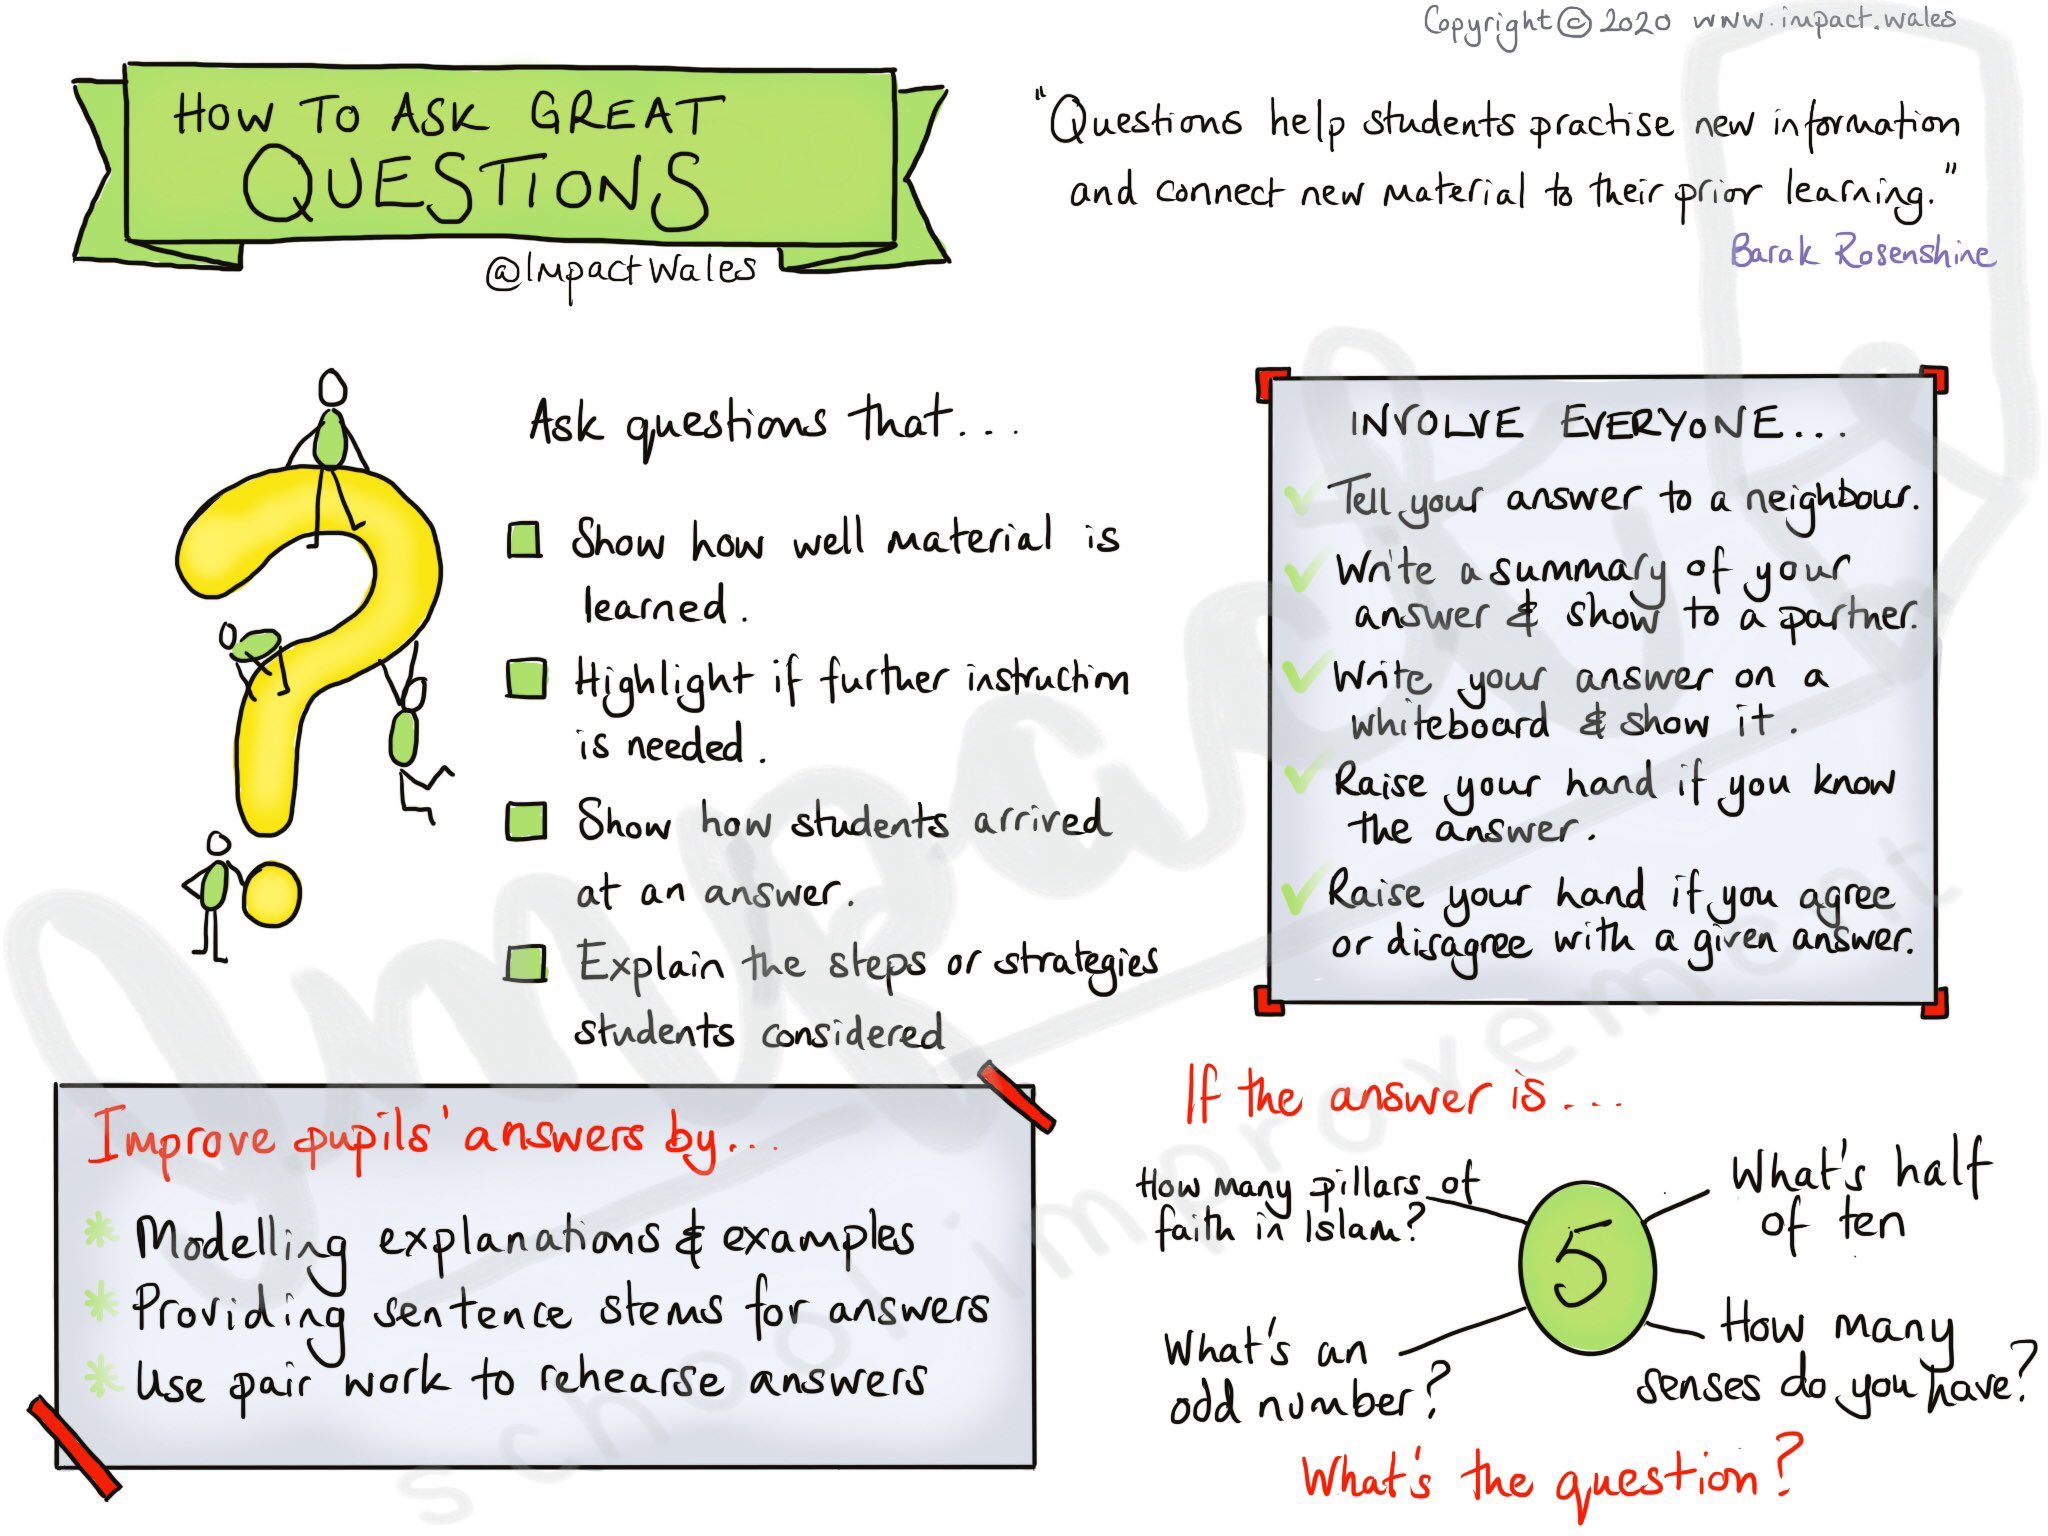 Copyright © 2020 www.impact.wales
HOW TO ASK GREAT
QUESTIONS
@ImpactWales
"Questions help students practise new information
and connect new material to their prior learning."
Barak Rosenshine
Ask questions that...
Show how well material is
learned.
Highlight if further instruction
is needed.
Show how students arrived
at an answer.
Explain the steps or strategies
students considered
INVOLVE EVERYONE...
Tell your answer to a neighbour.
Write a summary of your
answer & show to a partner.
Write your answer on a
whiteboard & show it.
Raise your hand if you know
the answer.
Raise your hand if you agree
or disagree with a given answer.
Improve pupils' answers by...
Modelling explanations & examples
Providing sentence stems for answers
Use pair work to rehearse answers
If the answer is...
How many pillars of
faith in Islam?
What's half
of ten
5
What's an
odd number?
How many
senses do you have?
What's the question?
Impact
school improvement